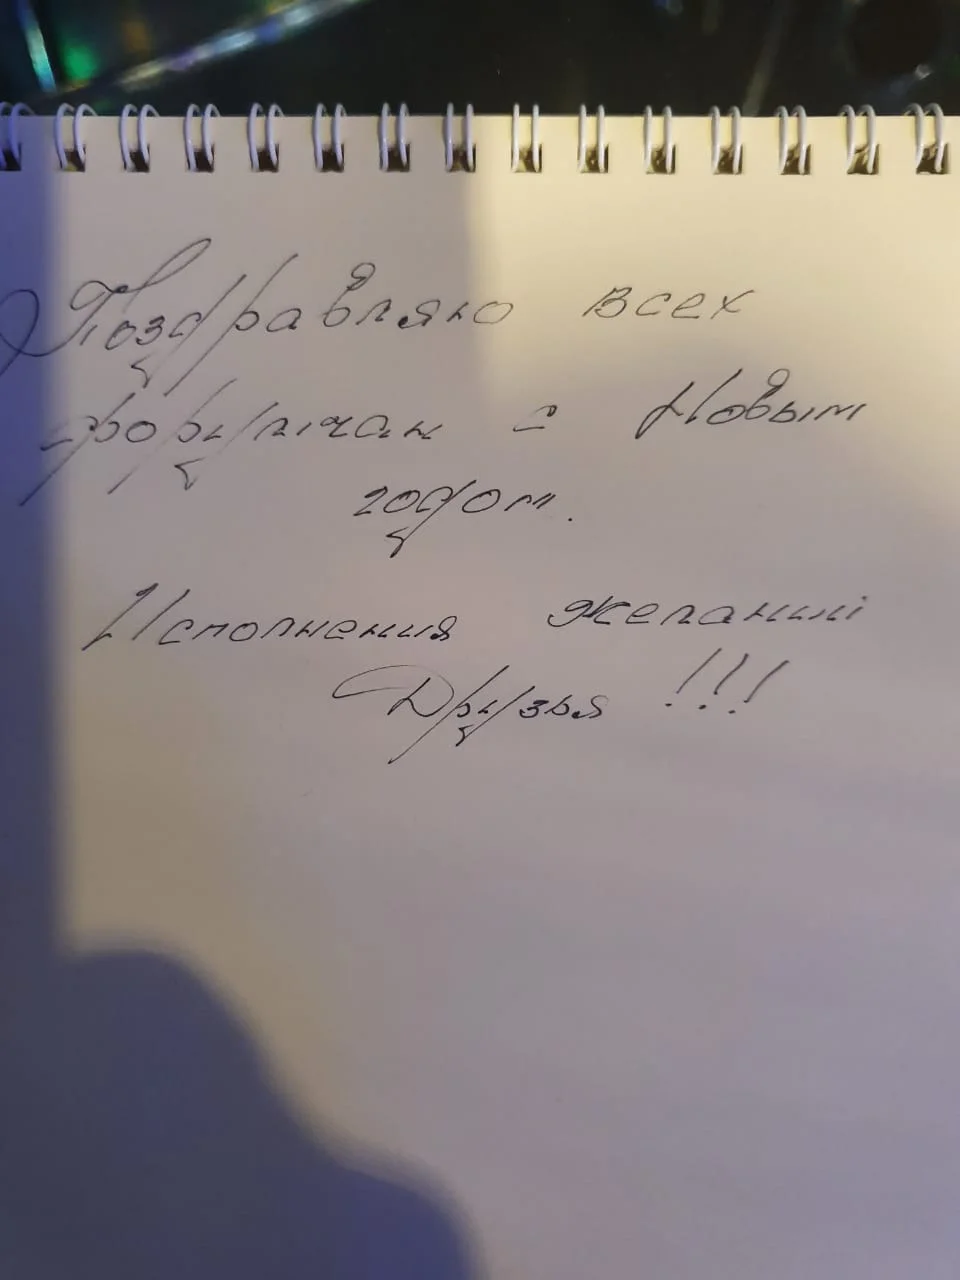 Поздравляю всех
форумчан с Новым
годом.
Исполнения желаний
Друзья !!!